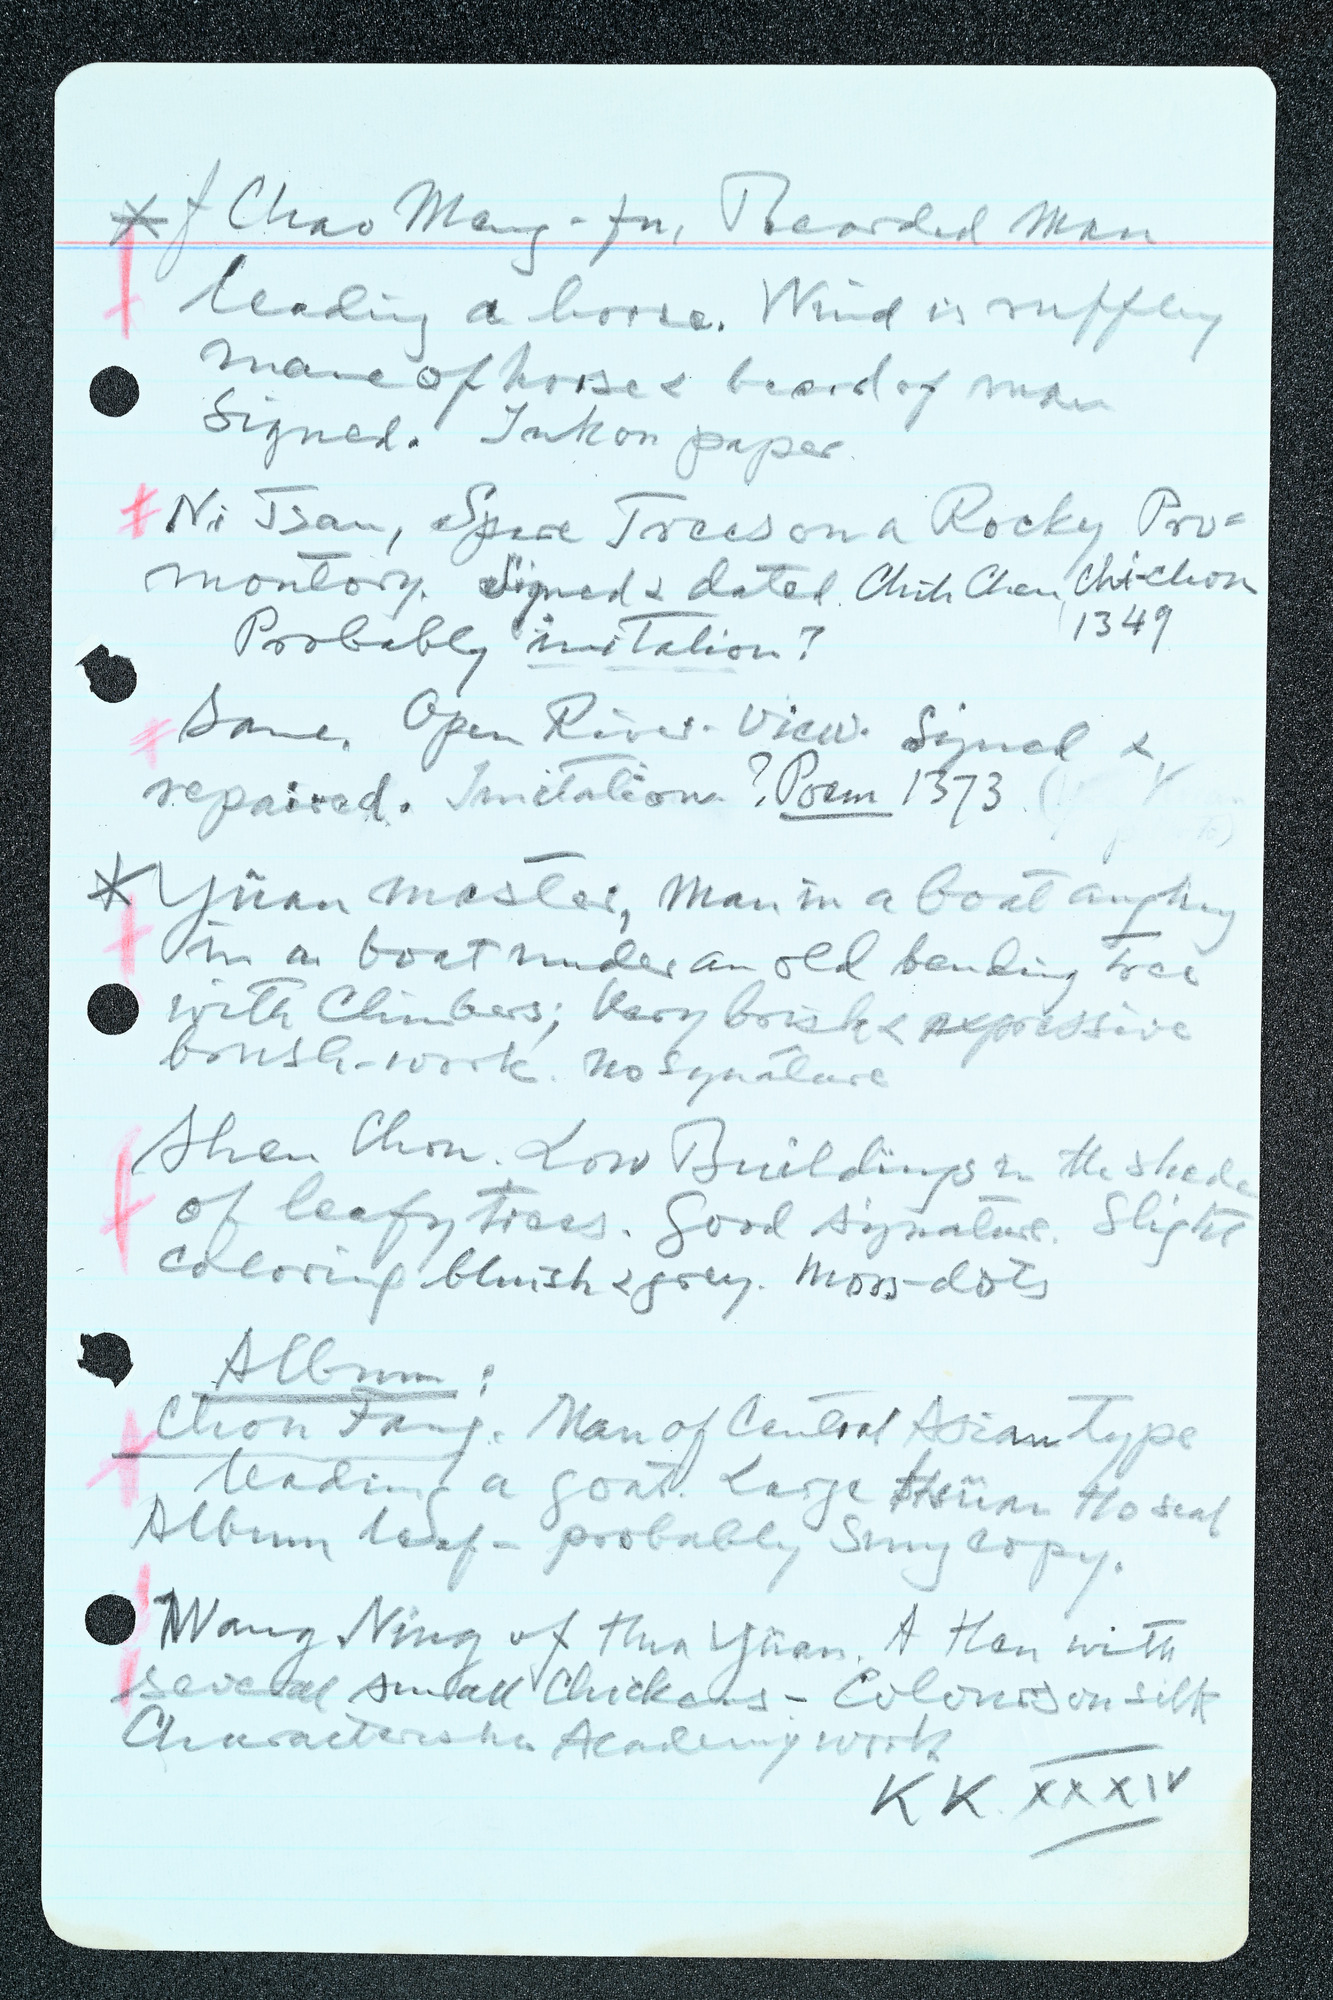 * f Chao Meng-fu, Bearded Man
leading a horse. Wind is ruffling
mane of horse & beard of man
Signed. Ink on paper.
Ni Tsan, Spare Trees on a Rocky Pro=
montory. Signed & dated. Chih Chen, Chi-chou
1349
Probably imitation?
Same. Open River-View. Signed &
repaired. Imitation? Poem 1373
* Yüan master, Man in a boat angling
in a boat under an old bending tree
with Climbers; Very brisk & expressive
brush-work. No signature
Shen Chou. Low Buildings in the shade
of leafy trees. Good signature. Slight
coloring bluish & grey. Moss-dots
Album:
Chou Fang. Man of Central Asian type
leading a goat. Large Hsüan Ho seal
Album leaf - probably Sung copy.
Wang Ning of Hua Yüan. A Hen with
several small Chickens - Colours on silk
Characteristic Academy work
KK. XXXIV